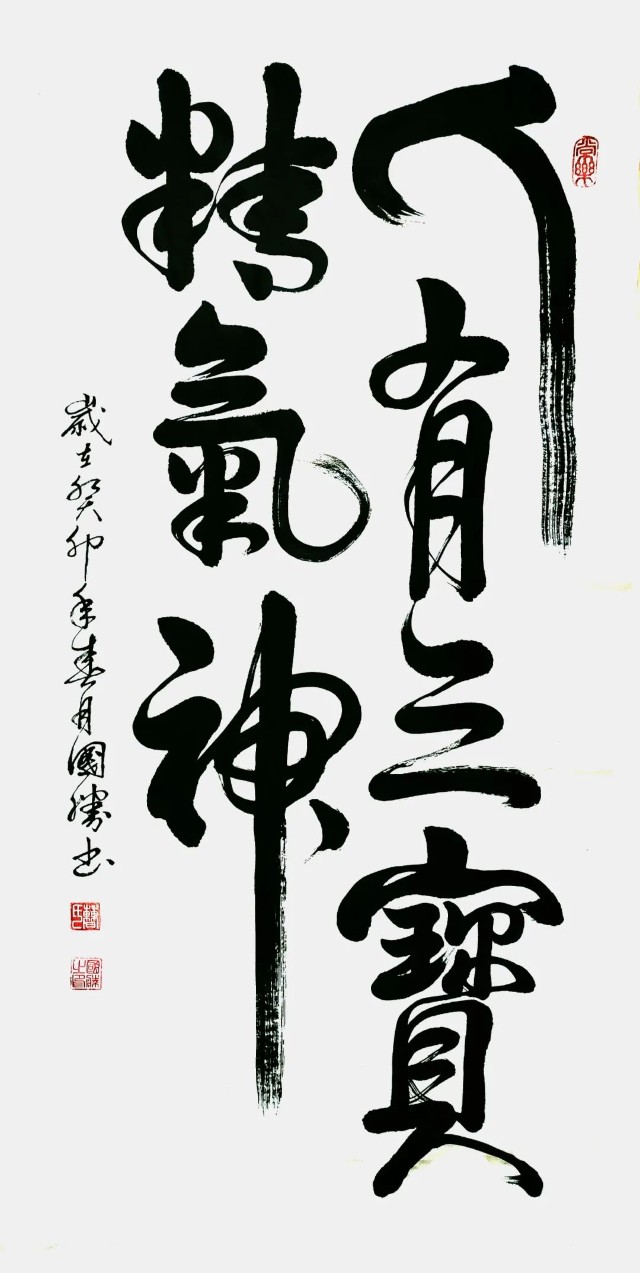 人有三寶
精氣神
歲在癸卯年春月國勝書